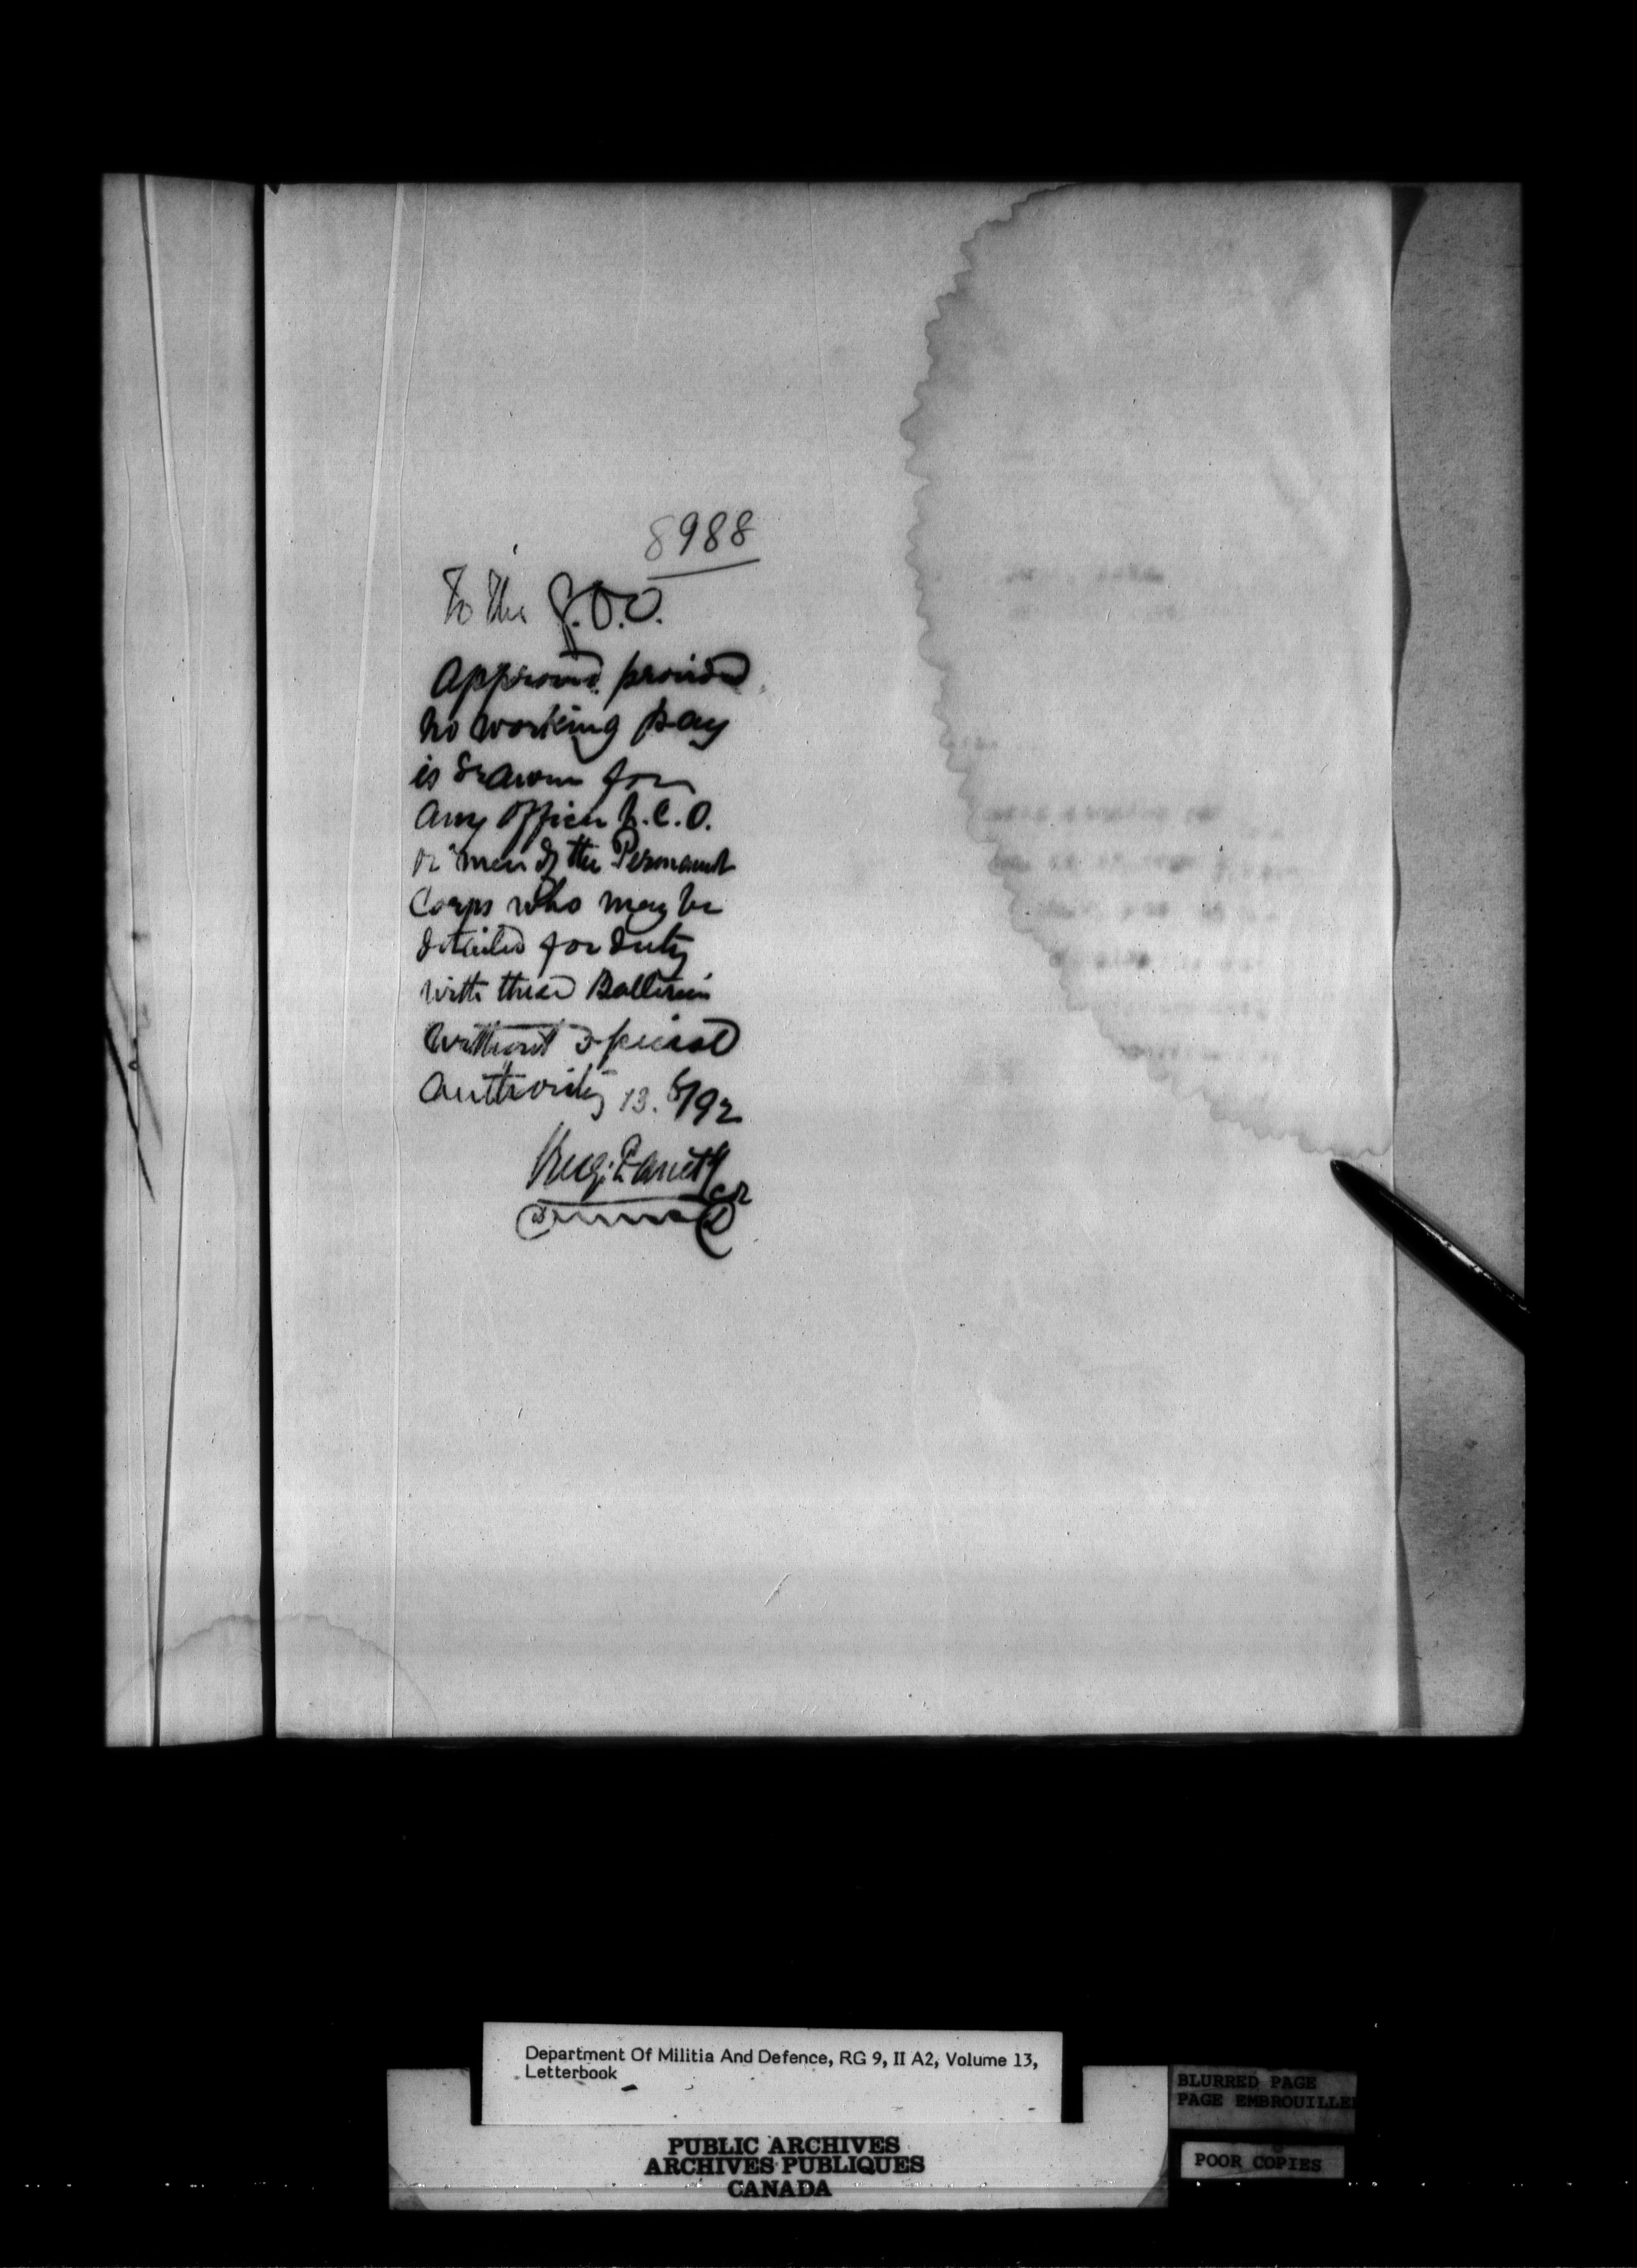 8988
To the G.O.C.
Approved provided
no working pay
is drawn for
any officer N.C.O.
or men of the Permanent
Corps who may be
detailed for duty
with these Batteries
without special
authority 13. 8/92
Department Of Militia And Defence, RG 9, II A2, Volume 13,
Letterbook
PUBLIC ARCHIVES
ARCHIVES PUBLIQUES
CANADA
BLURRED PAGE
PAGE EMBROUILLE
POOR COPIES